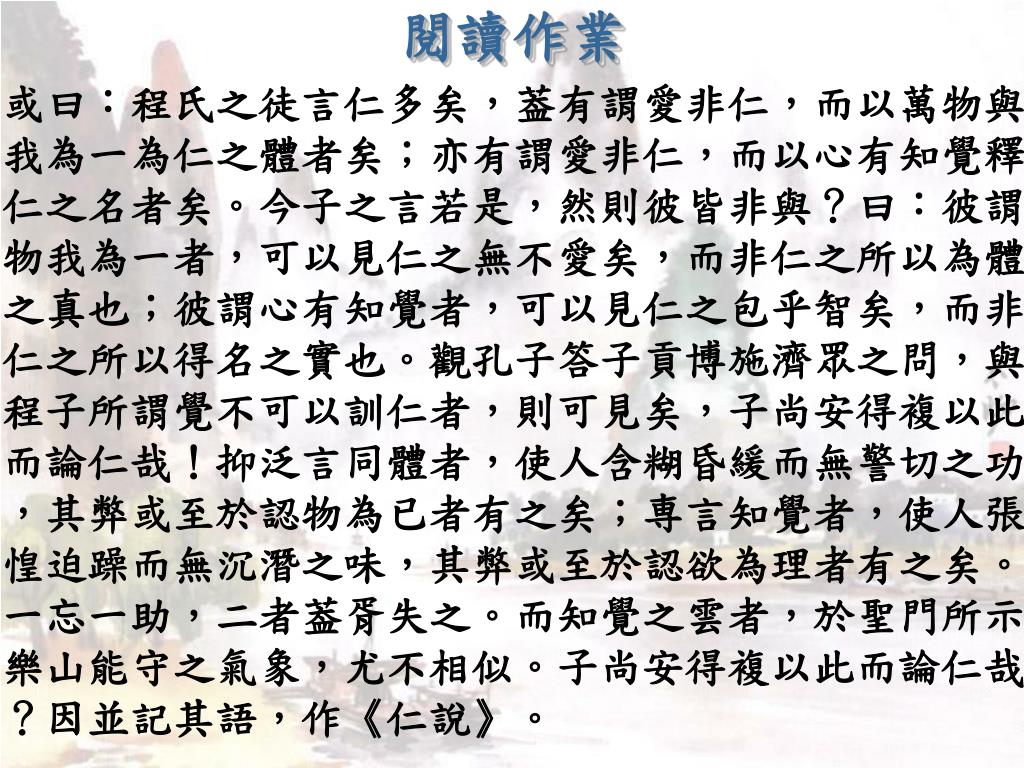 閱讀作業
或曰：程氏之徒言仁多矣，葢有謂愛非仁，而以萬物與
我為一為仁之體者矣；亦有謂愛非仁，而以心有知覺釋
仁之名者矣。今子之言若是，然則彼皆非與？曰：彼謂
物我為一者，可以見仁之無不愛矣，而非仁之所以為體
之真也；彼謂心有知覺者，可以見仁之包乎智矣，而非
仁之所以得名之實也。觀孔子答子貢博施濟眾之問，與
程子所謂覺不可以訓仁者，則可見矣，子尚安得複以此
而論仁哉！抑泛言同體者，使人含糊昏緩而無警切之功
，其弊或至於認物為已者有之矣；専言知覺者，使人張
惶迫躁而無沉潛之味，其弊或至於認欲為理者有之矣。
一忘一助，二者葢胥失之。而知覺之雲者，於聖門所示
樂山能守之氣象，尤不相似。子尚安得複以此而論仁哉
？因並記其語，作《仁說》。